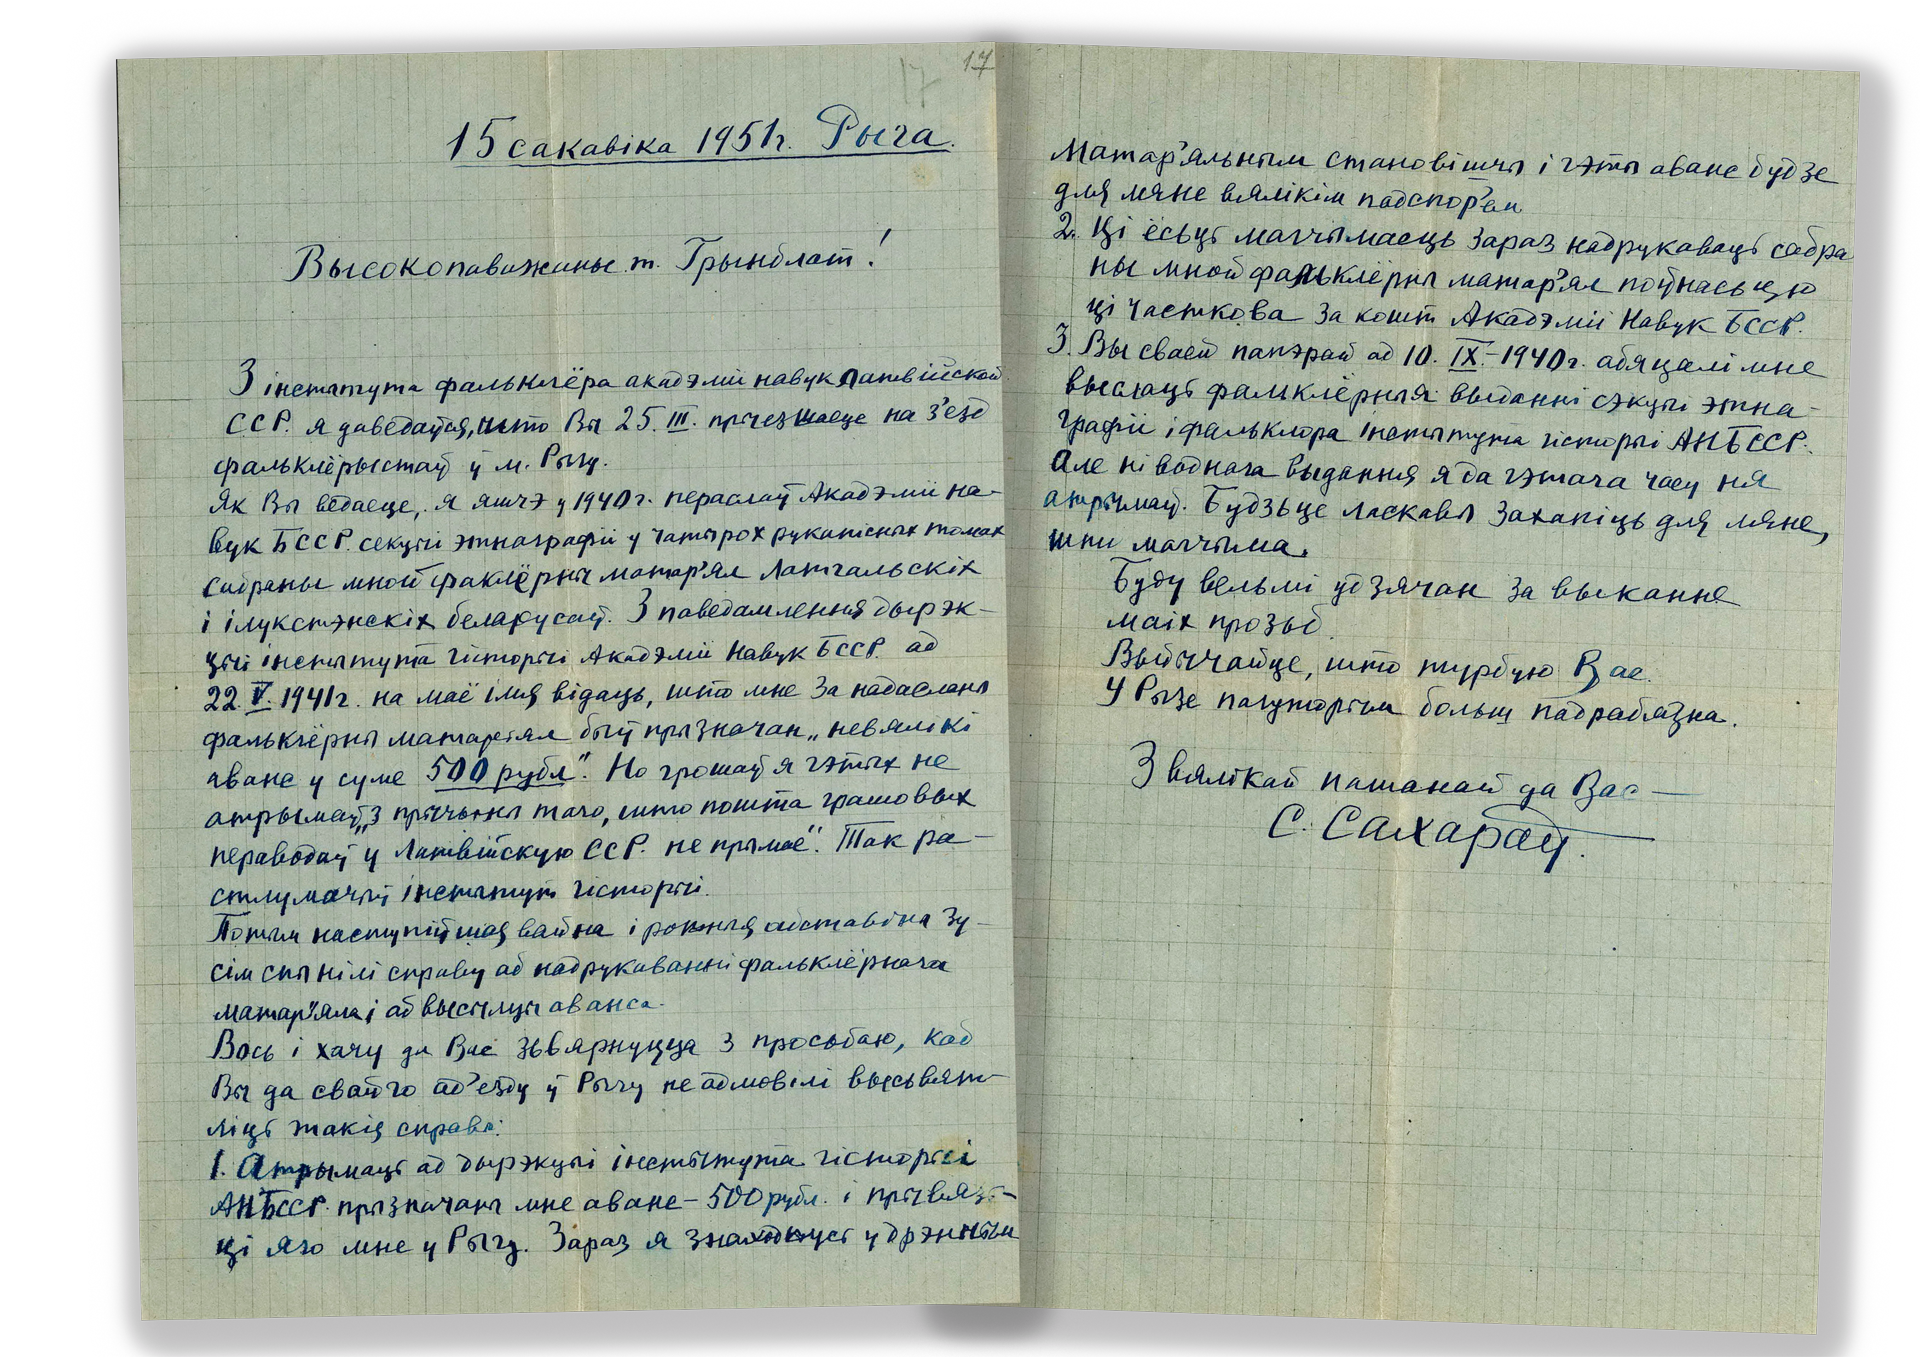 17
17
15 сакавіка 1951 г. Рыга.
Высокопаважаны т. Грынблат!
З інстытута фальклёра акадэміі навук Латвійской
ССР. я даведаўся, што Вы 25. III. прыезжаеце на з'езд
фальклёрыстаў ў м. Рыгу.
Як Вы ведаеце, я яшчэ у 1940 г. пераслаў Акадэміі на-
вук БССР. секцыі этнаграфіі у чатырох рукапісных томах
сабраны мной факлёрны матар'ял латгальскіх
і ілукстэнскіх беларусаў. З паведамлення дырэк-
цыі інстытута гісторыі Акадэміі Навук БССР ад
22. V. 1941 г. на маё імя відаць, што мне за надасланы
фальклёрны матарыял быў прызначан „невялікі
аванс у суме 500 рубл". Но грошаў я гэтых не
атрымаў „з прычыны таго, што пошта грашовых
пераводаў у Латвійскую ССР. не прымае". Так ра-
стлумачыў інстытут гісторыі.
Потым наступіўшая вайна і розныя абставіны зу-
сім спынілі справу аб надрукаванні фальклёрнага
матар'яла і аб высылцы аванса.
Вось і хачу да Вас звярнуцца з просьбаю, каб
Вы да свайго ад'езду ў Рыгу не адмовілі высьвят-
ліць такія справы:
1. Атрымаць ад дырэкцыі інстытута гісторыі
АНБССР. прызначаны мне аванс – 500 рубл. і прывяз-
ці яго мне у Рыгу. Зараз я знаходжусь у дрэнным
матар'яльным становішчы і гэты аванс будзе
для мяне вялікім падспор'ем
2. Ці ёсьць магчымасць зараз надрукаваць сабра
ны мной фальклёрны матар'ял поўнасьцю
ці часткова за кошт Акадэміі Навук БССР.
3. Вы сваей паперай ад 10. IX. – 1940 г. абяцалі мне
выслаць фальклёрныя выданні сэкцыі этна-
графіі і фальклора інстытута гісторыі АНБССР.
Але ні воднага выдання я да гэтага часу ня
атрымаў. Будзьце ласкавы захапіць для мяне,
што магчыма.
Буду вельмі удзячан за выканне
маіх прозьб.
Выбачайце, што турбую Вас.
У Рызе пагутарым больш падрабязна.
З вялікай пашанай да Вас –
С. Сахараў.